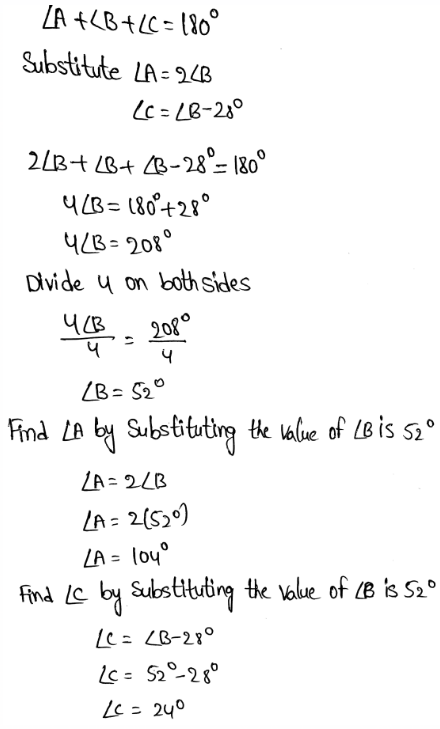 ∠A + ∠B + ∠C = 180°
Substitute ∠A = 2∠B
∠C = ∠B - 28°
2∠B + ∠B + ∠B - 28° = 180°
4∠B = 180° + 28°
4∠B = 208°
Divide 4 on both sides
4∠B/4 = 208°/4
∠B = 52°
Find ∠A by Substituting the value of ∠B is 52°
∠A = 2∠B
∠A = 2(52°)
∠A = 104°
Find ∠C by Substituting the value of ∠B is 52°
∠C = ∠B - 28°
∠C = 52° - 28°
∠C = 24°